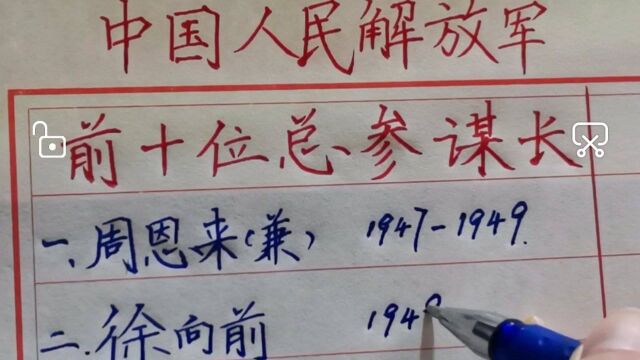 中国人民解放军
前十位总参谋长
一、周恩来(兼) 1947-1949.
二.徐向前 194